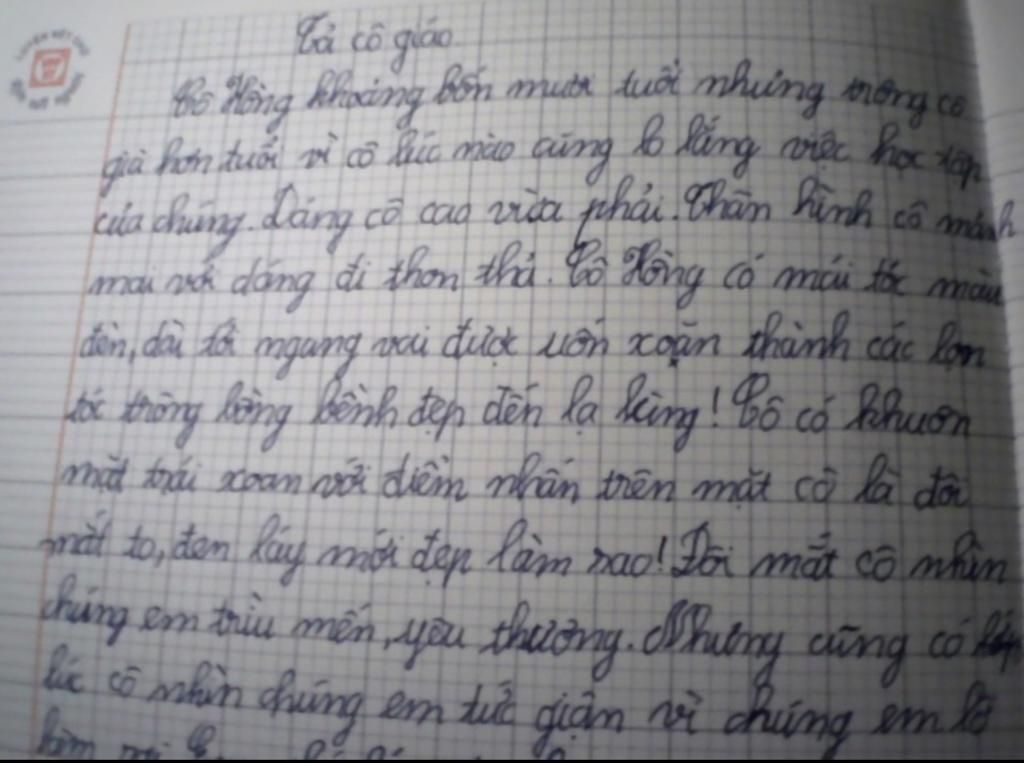 Tả cô giáo
Cô Hồng khoảng bốn mươi tuổi nhưng trông cô
già hơn tuổi vì cô lúc nào cũng lo lắng việc học tập
của chúng. Dáng cô cao vừa phải. Thân hình cô mảnh
mai với dáng đi thon thả. Cô Hồng có mái tóc màu
đen, dài tới ngang vai được uốn xoăn thành các lọn
tóc trông bồng bềnh đẹp đến lạ lùng! Cô có khuôn
mặt trái xoan với điểm nhấn trên mặt cô là đôi
mắt to, đen láy mới đẹp làm sao! Đôi mắt cô nhìn
chúng em trìu mến, yêu thương. Nhưng cũng có
lúc cô nhìn chúng em tức giận vì chúng em lỡ